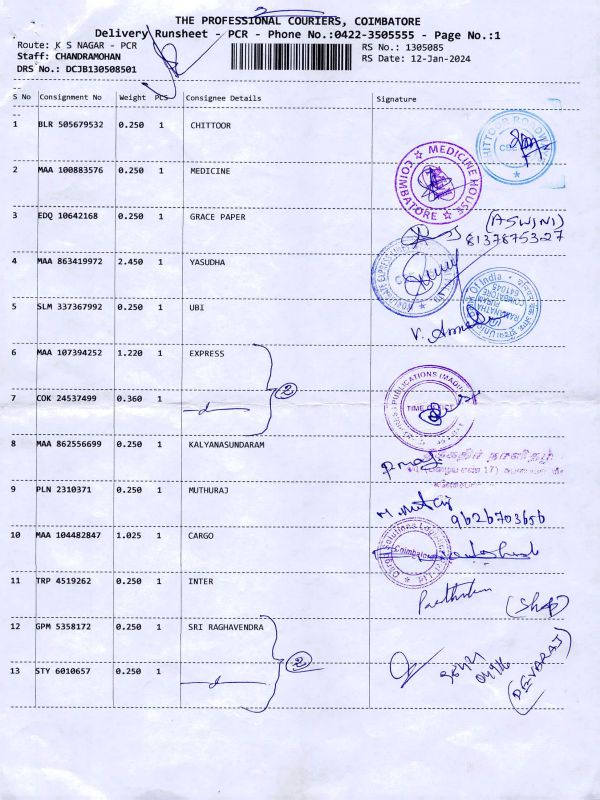 THE PROFESSIONAL COURIERS, COIMBATORE
Delivery Runsheet - PCR - Phone No.:0422-3505555 - Page No.:1
Route: K S NAGAR - PCR
RS No.: 1305085
Staff: CHANDRAMOHAN
RS Date: 12-Jan-2024
DRS No.: DCJB130508501
S No Consignment No Weight PCS Consignee Details Signature
1 BLR 505679532 0.250 1 CHITTOOR
2 MAA 100883576 0.250 1 MEDICINE
MEDICINE HOUSE
COIMBATORE
3 EDQ 10642168 0.250 1 GRACE PAPER
(ASWINI)
8137875327
4 MAA 863419972 2.450 1 YASUDHA
5 SLM 337367992 0.250 1 UBI
6 MAA 107394252 1.220 1 EXPRESS
2
7 COK 24537499 0.360 1
8 MAA 862556699 0.250 1 KALYANASUNDARAM
9 PLN 2310371 0.250 1 MUTHURAJ
9626703656
10 MAA 104482847 1.025 1 CARGO
Coimbatore
11 TRP 4519262 0.250 1 INTER
(Shop)
12 GPM 5358172 0.250 1 SRI RAGHAVENDRA
2
(DEVARAJ)
13 STY 6010657 0.250 1